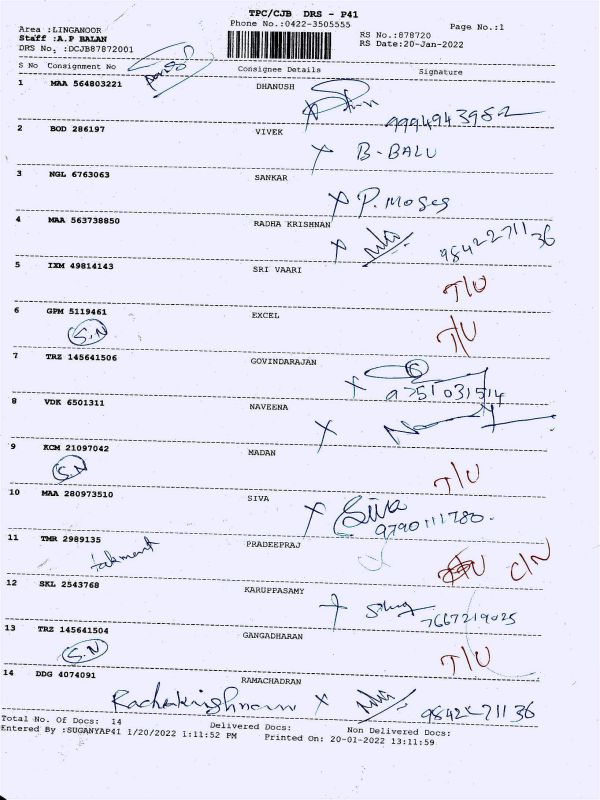 TPC/CJB DRS - P41
Area :LINGANOOR Phone No.:0422-3505555 Page No.:1
Staff :A.P BALAN RS No.:878720
DRS No, :DCJB87872001 RS Date:20-Jan-2022
S No Consignment No Consignee Details Signature
1 MAA 564803221 DHANUSH
9994943982
2 BOD 286197 VIVEK
X B-BALU
3 NGL 6763063 SANKAR
X P. Moses
4 MAA 563738850 RADHA KRISHNAN
X 9842271136
5 IXM 49814143 SRI VAARI
T/U
6 GPM 5119461 EXCEL
S.N T/U
7 TRZ 145641506 GOVINDARAJAN
X 9751031514
8 VDK 6501311 NAVEENA
X
9 KCM 21097042 MADAN
S.N T/U
10 MAA 280973510 SIVA
X Siva
9790111780.
11 TMR 2989135 PRADEEPRAJ
C/N
12 SKL 2543768 KARUPPASAMY
7667219025
13 TRZ 145641504 GANGADHARAN
S.N T/U
14 DDG 4074091 RAMACHADRAN
Radhakrishnan X 9842271136
Total No. Of Docs: 14 Delivered Docs: Non Delivered Docs:
Entered By :SUGANYAP41 1/20/2022 1:11:52 PM Printed On: 20-01-2022 13:11:59